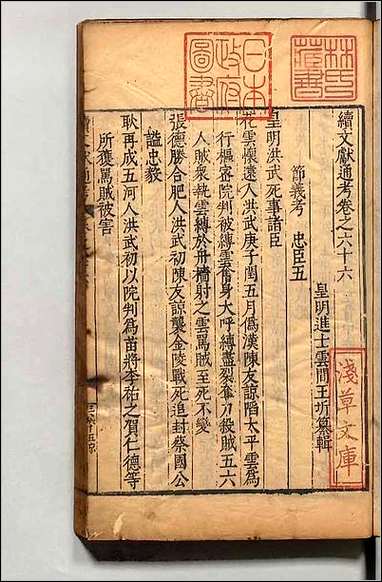 續文獻通考卷之六十六
皇明進士雲間王圻纂輯
節義考 忠臣五
皇明洪武死事諸臣
花雲懷遠人洪武庚子閏五月僞漢陳友諒陷太平雲爲
行樞密院判被縛雲奮身大呼縛盡裂奪刀殺賊五六
人賊衆執雲縛於舟檣射之雲罵賊至死不變
張德勝合肥人洪武初陳友諒襲金陵戰死追封蔡國公
謚忠毅
耿再成五河人洪武初以院判爲苗將李祐之賀仁德等
所獲罵賊被害
林氏藏書
日本政府圖書
淺草文庫
續文獻通考